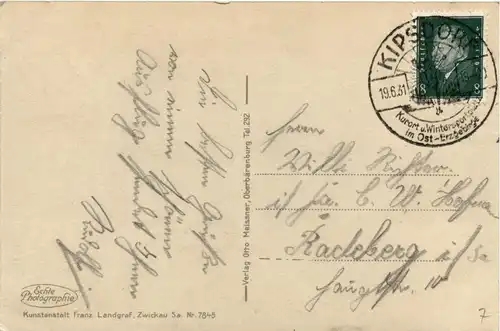 Die besten Grüße
von einem kleinen
Ausflug sendet Ihnen
KIPSDORF
19.6.31
Kurort u. Wintersportplatz
im Ost-Erzgebirge
8
8
Herrn
Willi Richter
i/Fa. C. W.
Radeberg i/Sa
Hauptstr. 10
Verlag Otto Meissner, Oberbärenburg Tel. 292
Echte
Photographie
Kunstanstalt Franz Landgraf, Zwickau Sa. Nr. 7845
7